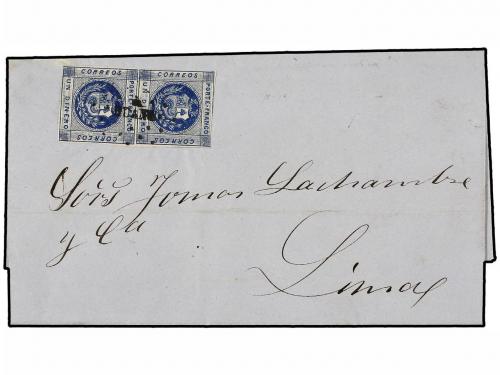 CORREOS CORREOS
UN DINERO PORTE FRANCO UN DINERO PORTE FRANCO
CORREOS CORREOS
Sōrs Tomas Lachambre
y Ca
Lima